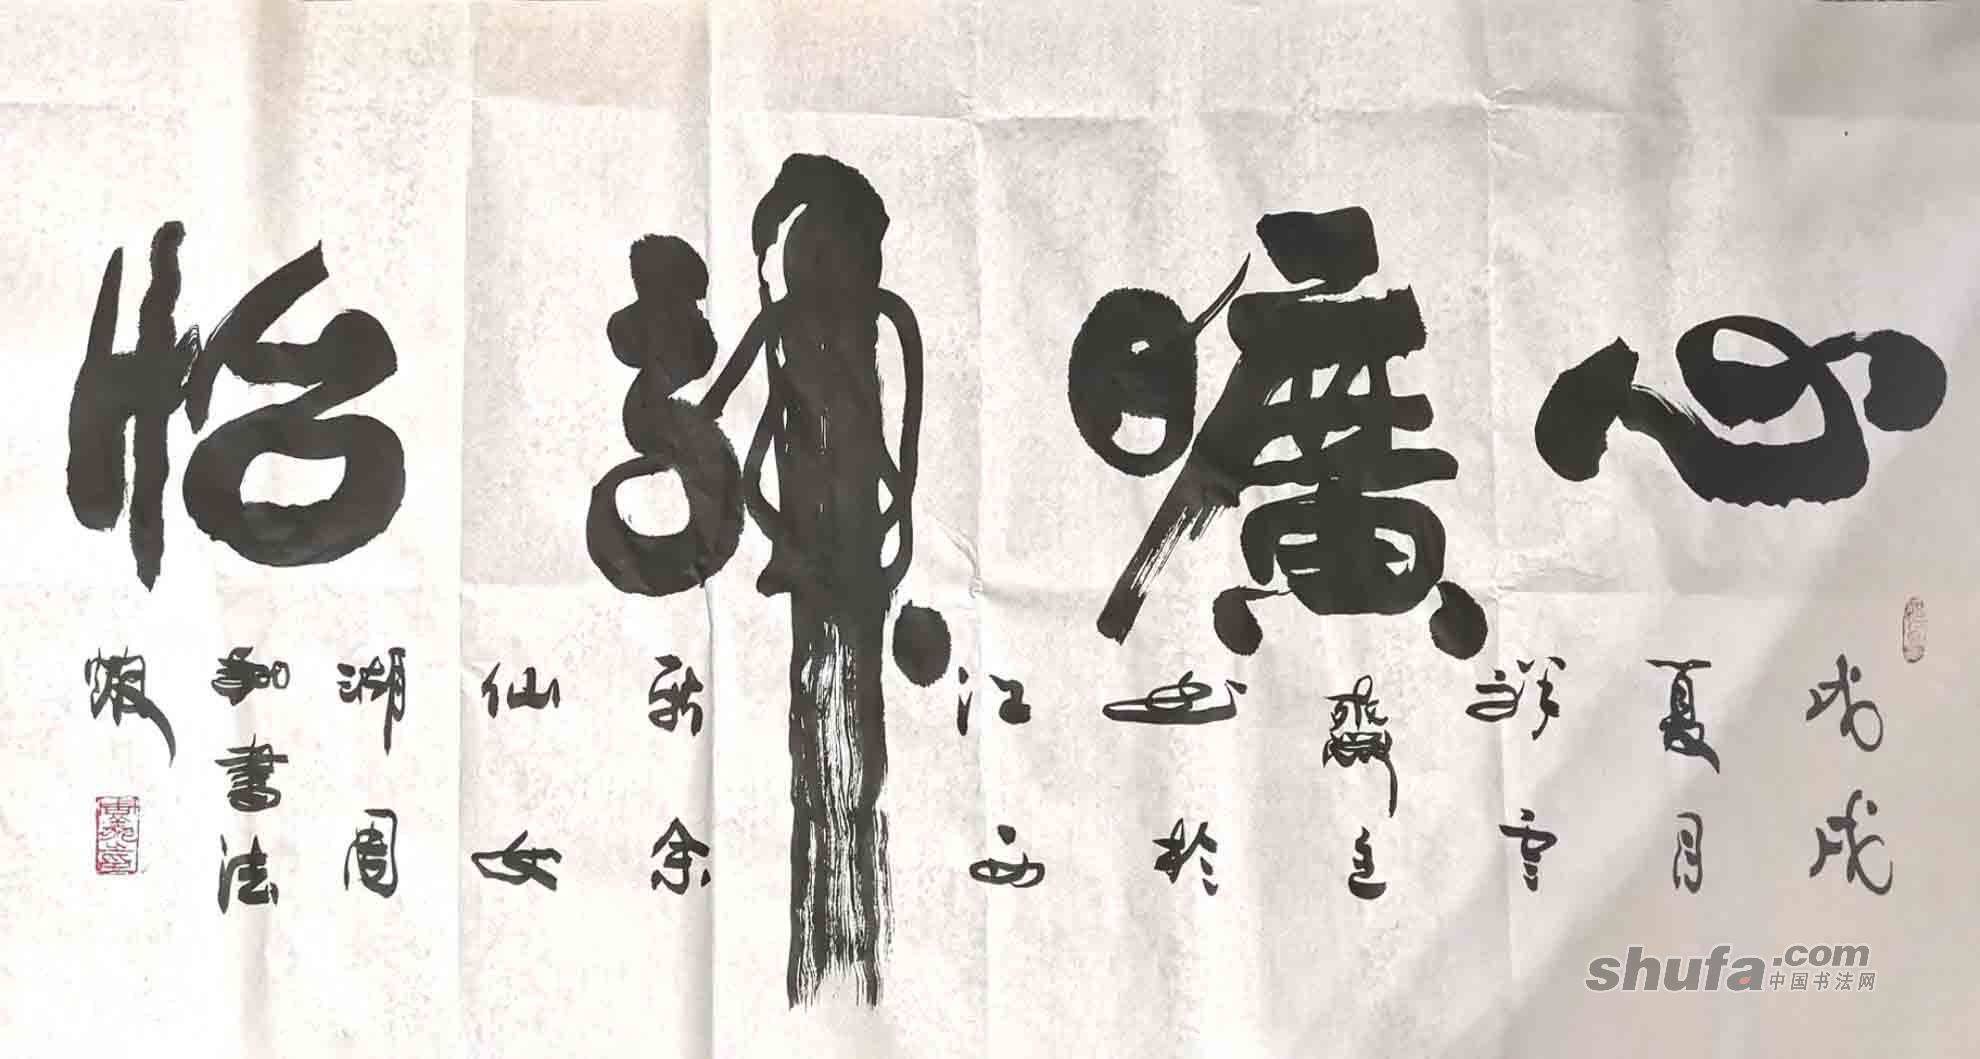 心曠神怡
戊戌
夏月
祥雲
齋主
书於
江西
新余
仙女
湖周
書法
shufa.com
中国书法网